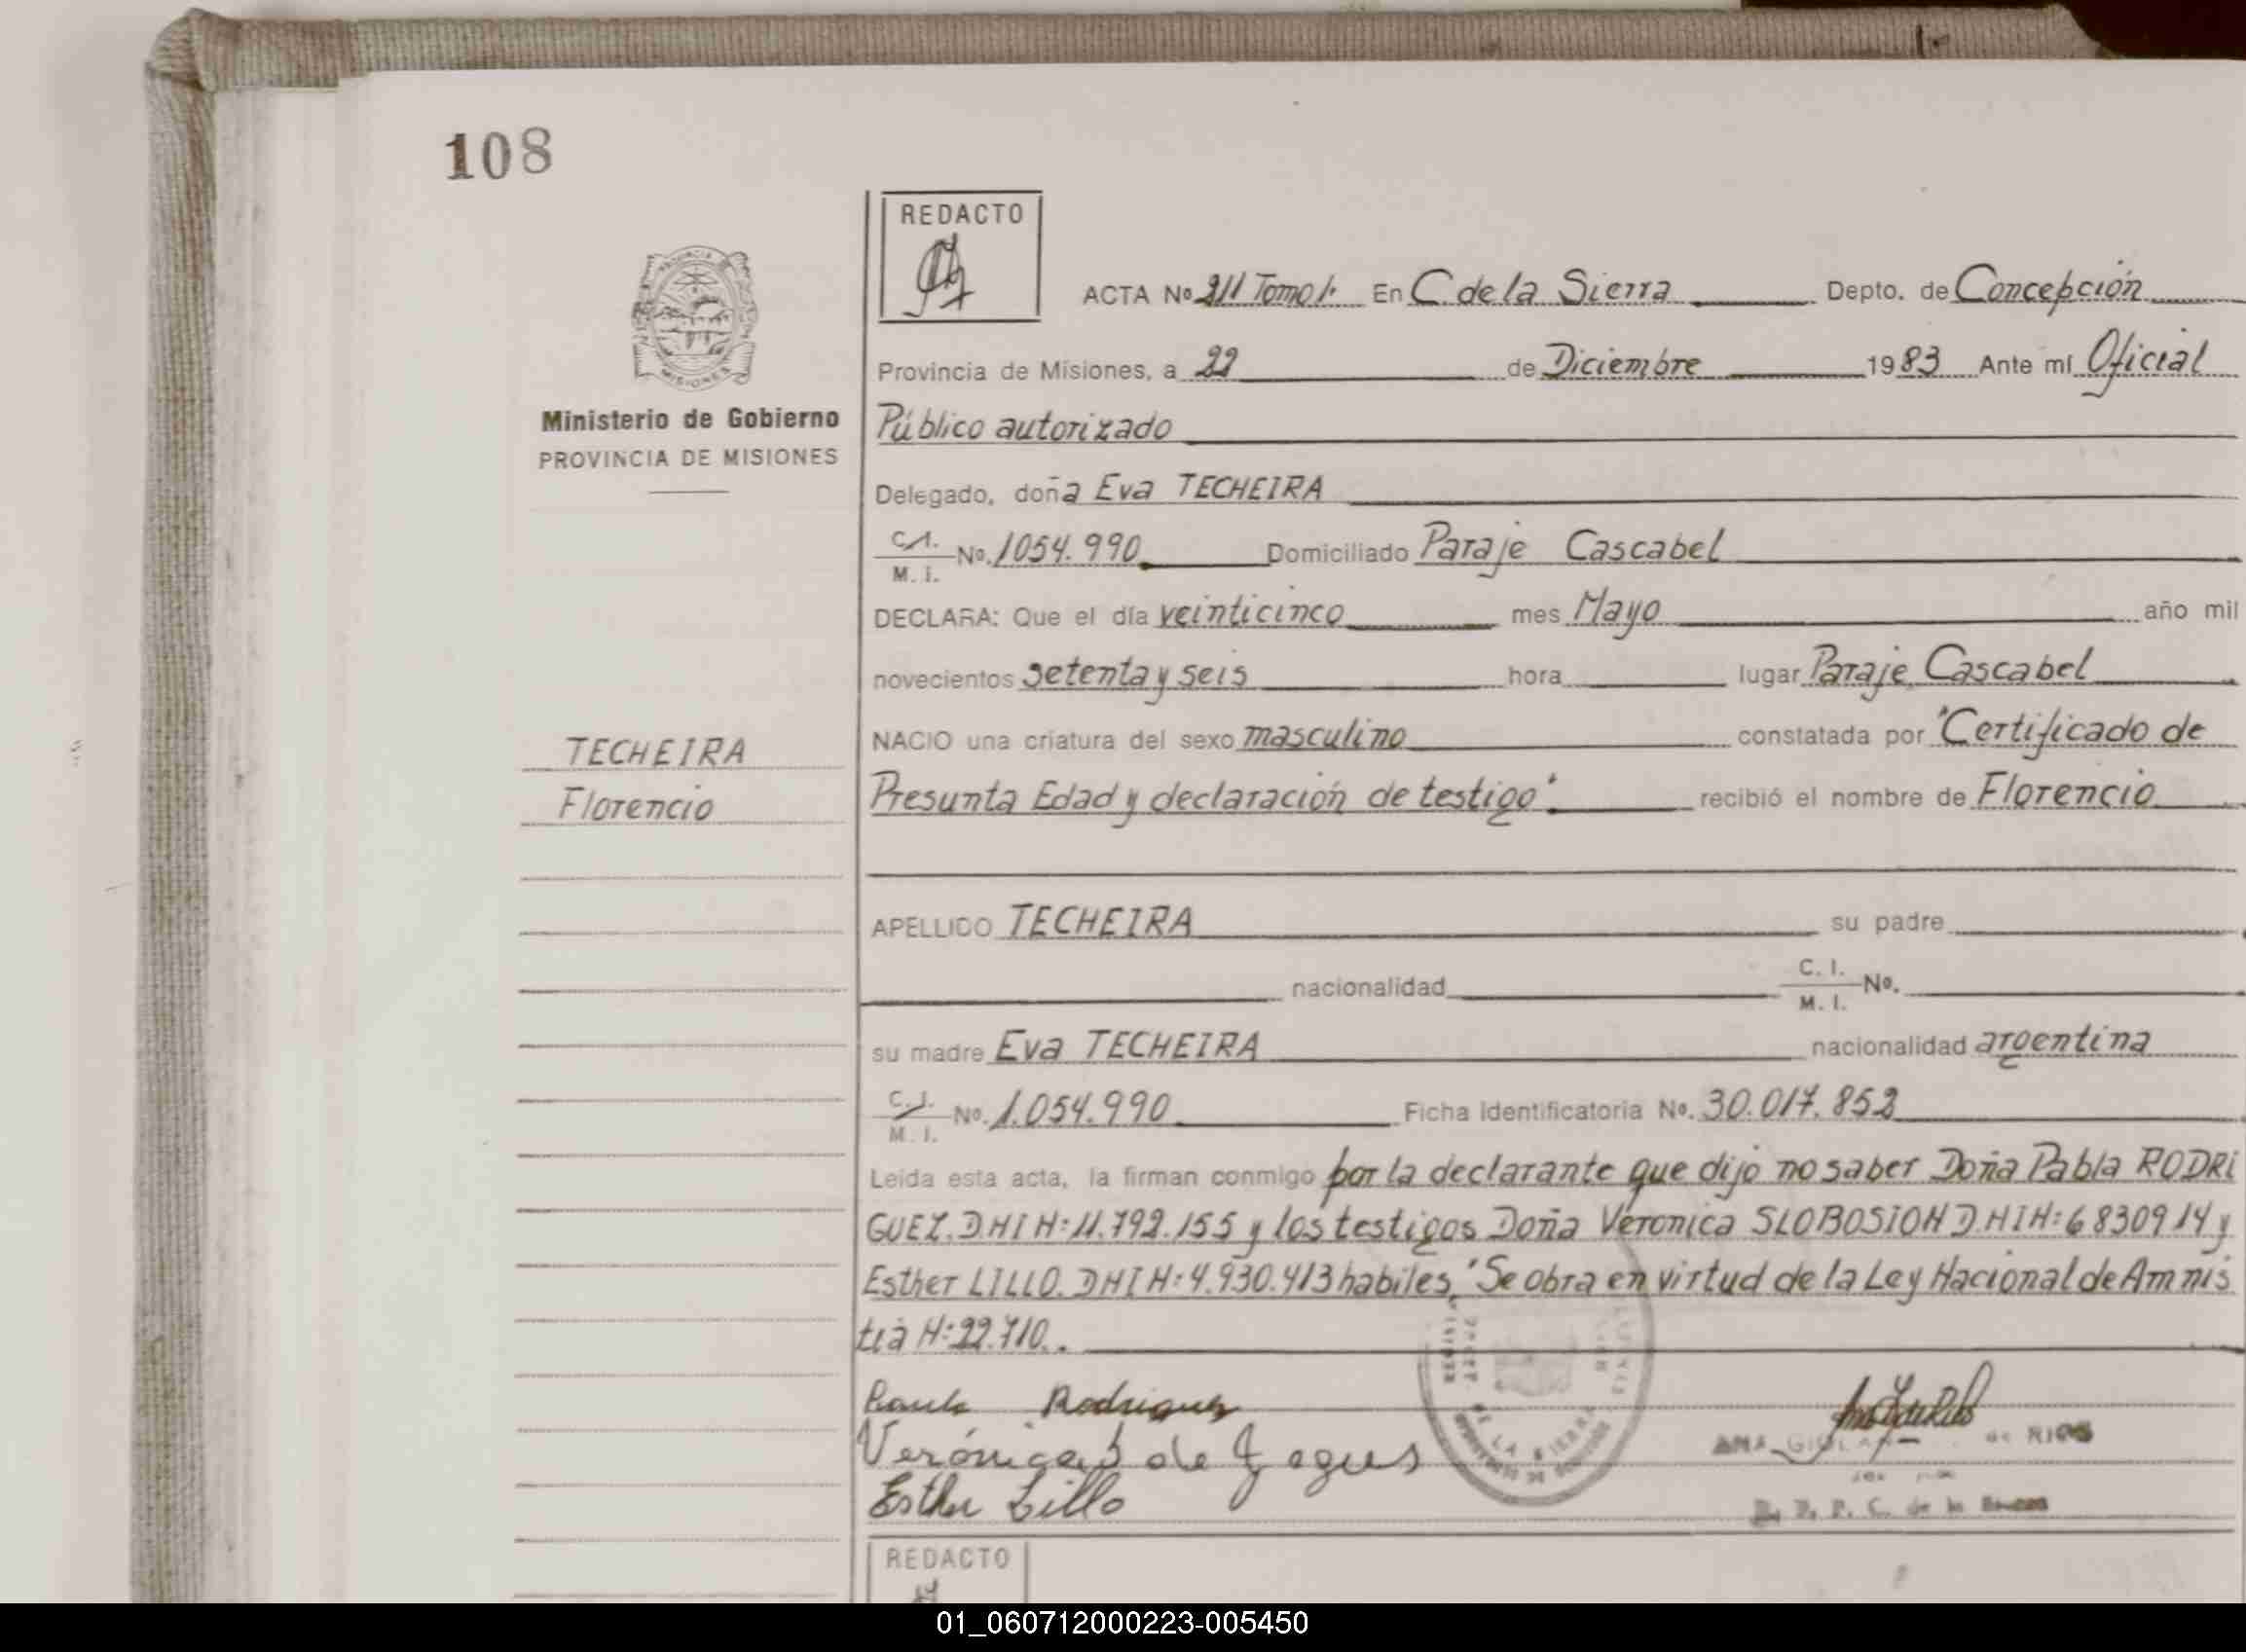 108
REDACTO
ACTA Nº 211 Tomo 1. En C de la Sierra Depto. de Concepción
Provincia de Misiones, a 22 de Diciembre 1983 Ante mí Oficial
Ministerio de Gobierno
PROVINCIA DE MISIONES
Público autorizado
Delegado, doña Eva TECHEIRA
C.I. M. I. Nº. 1054.990 Domiciliado Paraje Cascabel
DECLARA: Que el día veinticinco mes Mayo año mil
novecientos setenta y seis hora lugar Paraje Cascabel
TECHEIRA
Florencio
NACIO una criatura del sexo masculino constatada por "Certificado de
Presunta Edad y declaración de testigo". recibió el nombre de Florencio
APELLIDO TECHEIRA su padre
nacionalidad C. I. M. I. Nº.
su madre Eva TECHEIRA nacionalidad argentina
C. I. M. I. Nº. 1.054.990 Ficha Identificatoria Nº. 30.017.852
Leída esta acta, la firman conmigo por la declarante que dijo no saber Doña Pabla RODRI
GUEZ. DNI N: 11.792.155 y los testigos Doña Véronica SLOBOSION D.NIN: 6830914 y
Esther LILLO. DNI N: 4.930.413 habiles, "Se obra en virtud de la Ley Nacional de Amnis
tia N: 22.710..
Rodriguez
Verónica S de
Esther Lillo
DE LA SIERRA
ANA de RIOS
R. P. C. de la Sierra
REDACTO
01_060712000223-005450